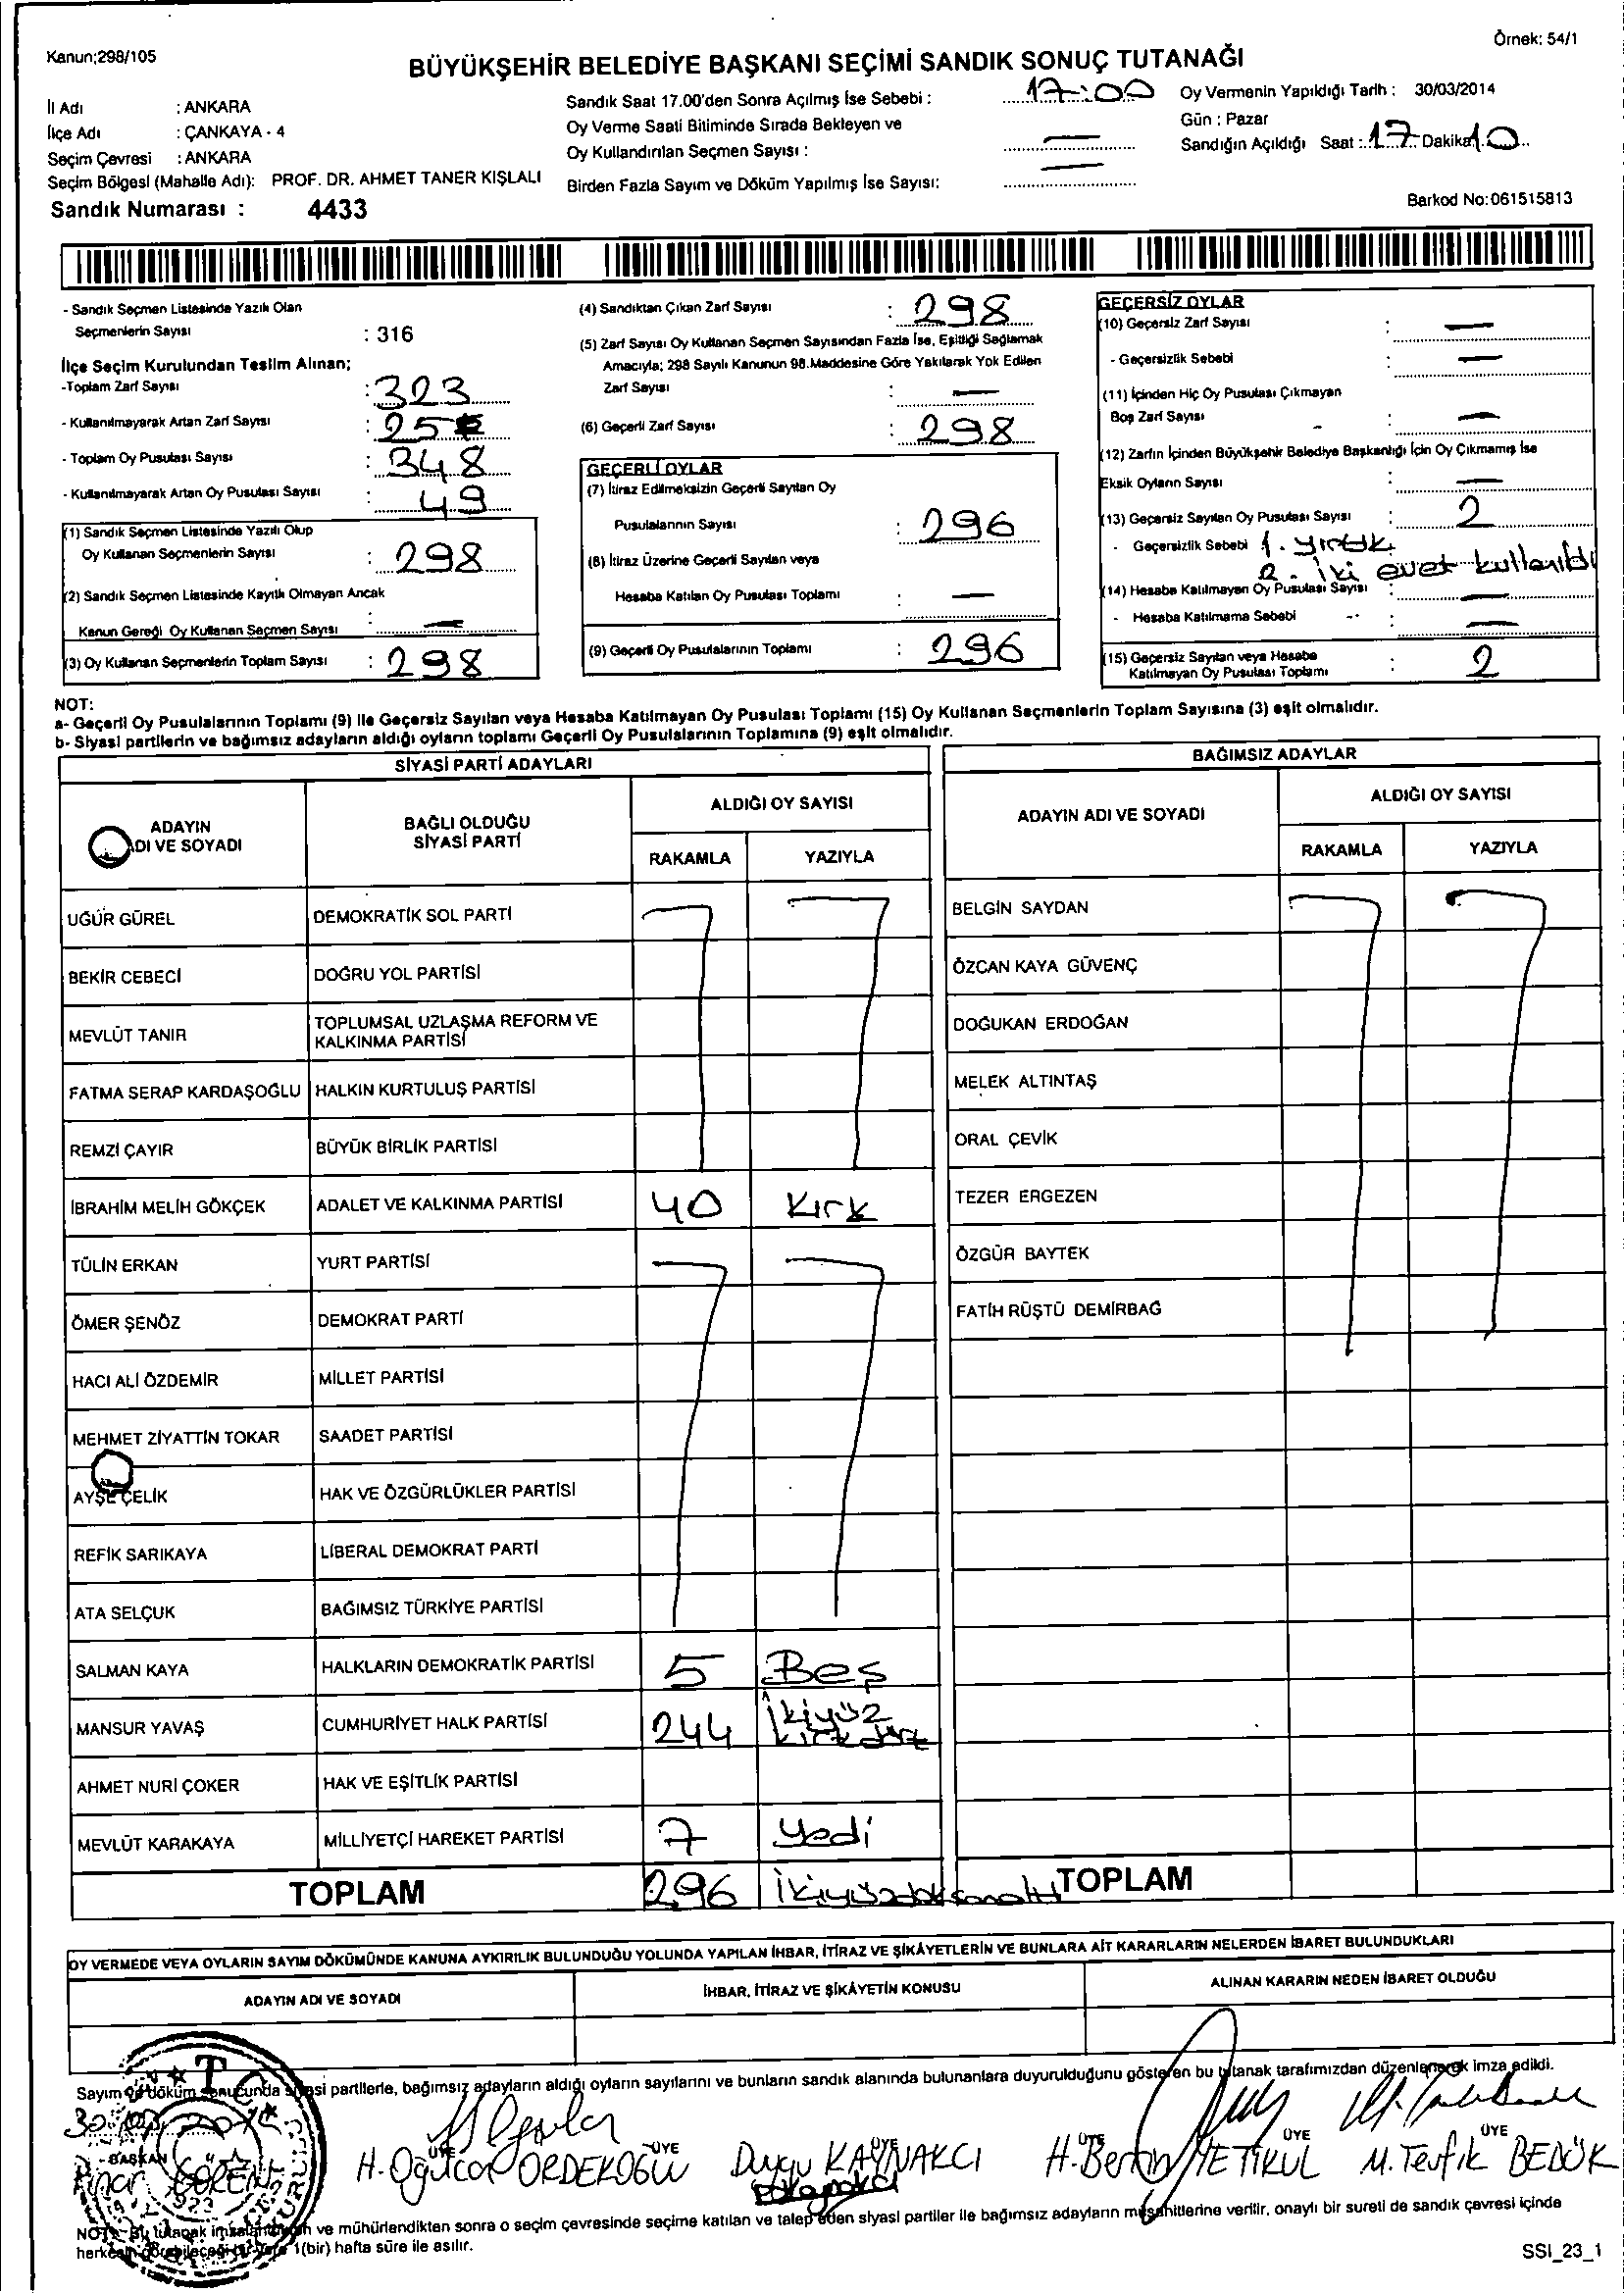 Kanun;298/105
Örnek: 54/1
BÜYÜKŞEHİR BELEDİYE BAŞKANI SEÇİMİ SANDIK SONUÇ TUTANAĞI
İl Adı : ANKARA
İlçe Adı : ÇANKAYA - 4
Seçim Çevresi : ANKARA
Seçim Bölgesi (Mahalle Adı): PROF. DR. AHMET TANER KIŞLALI
Sandık Numarası : 4433
Sandık Saat 17.00'den Sonra Açılmış İse Sebebi : 17:00
Oy Verme Saati Bitiminde Sırada Bekleyen ve
Oy Kullandırılan Seçmen Sayısı : —
Birden Fazla Sayım ve Döküm Yapılmış İse Sayısı: —
Oy Vermenin Yapıldığı Tarih : 30/03/2014
Gün : Pazar
Sandığın Açıldığı Saat : 17 Dakika 10
Barkod No:061515813
- Sandık Seçmen Listesinde Yazılı Olan
Seçmenlerin Sayısı : 316
İlçe Seçim Kurulundan Teslim Alınan;
-Toplam Zarf Sayısı : 323
- Kullanılmayarak Artan Zarf Sayısı : 25
- Toplam Oy Pusulası Sayısı : 348
- Kullanılmayarak Artan Oy Pusulası Sayısı : 49
(1) Sandık Seçmen Listesinde Yazılı Olup
Oy Kullanan Seçmenlerin Sayısı : 298
(2) Sandık Seçmen Listesinde Kayıtlı Olmayan Ancak
Kanun Gereği Oy Kullanan Seçmen Sayısı : —
(3) Oy Kullanan Seçmenlerin Toplam Sayısı : 298
(4) Sandıktan Çıkan Zarf Sayısı : 298
(5) Zarf Sayısı Oy Kullanan Seçmen Sayısından Fazla İse, Eşitliği Sağlamak
Amacıyla; 298 Sayılı Kanunun 98.Maddesine Göre Yakılarak Yok Edilen
Zarf Sayısı : —
(6) Geçerli Zarf Sayısı : 298
GEÇERLİ OYLAR
(7) İtiraz Edilmeksizin Geçerli Sayılan Oy
Pusulalarının Sayısı : 296
(8) İtiraz Üzerine Geçerli Sayılan veya
Hesaba Katılan Oy Pusulası Toplamı : —
(9) Geçerli Oy Pusulalarının Toplamı : 296
GEÇERSİZ OYLAR
(10) Geçersiz Zarf Sayısı : —
- Geçersizlik Sebebi : —
(11) İçinden Hiç Oy Pusulası Çıkmayan
Boş Zarf Sayısı : —
(12) Zarfın İçinden Büyükşehir Belediye Başkanlığı İçin Oy Çıkmamış İse
Eksik Oyların Sayısı : —
(13) Geçersiz Sayılan Oy Pusulası Sayısı : 2
- Geçersizlik Sebebi 1. yırtık
2. iki evet kullanıldı
(14) Hesaba Katılmayan Oy Pusulası Sayısı : —
- Hesaba Katılmama Sebebi : —
(15) Geçersiz Sayılan veya Hesaba
Katılmayan Oy Pusulası Toplamı : 2
NOT:
a- Geçerli Oy Pusulalarının Toplamı (9) ile Geçersiz Sayılan veya Hesaba Katılmayan Oy Pusulası Toplamı (15) Oy Kullanan Seçmenlerin Toplam Sayısına (3) eşit olmalıdır.
b- Siyasi partilerin ve bağımsız adayların aldığı oyların toplamı Geçerli Oy Pusulalarının Toplamına (9) eşit olmalıdır.
SİYASİ PARTİ ADAYLARI
ADAYIN ADI VE SOYADI
BAĞLI OLDUĞU SİYASİ PARTİ
ALDIĞI OY SAYISI
RAKAMLA YAZIYLA
UĞUR GÜREL DEMOKRATİK SOL PARTİ
BEKİR CEBECİ DOĞRU YOL PARTİSİ
MEVLÜT TANIR TOPLUMSAL UZLAŞMA REFORM VE KALKINMA PARTİSİ
FATMA SERAP KARDAŞOĞLU HALKIN KURTULUŞ PARTİSİ
REMZİ ÇAYIR BÜYÜK BİRLİK PARTİSİ
İBRAHİM MELİH GÖKÇEK ADALET VE KALKINMA PARTİSİ 40 Kırk
TÜLİN ERKAN YURT PARTİSİ
ÖMER ŞENÖZ DEMOKRAT PARTİ
HACI ALİ ÖZDEMİR MİLLET PARTİSİ
MEHMET ZİYATTİN TOKAR SAADET PARTİSİ
AYŞE ÇELİK HAK VE ÖZGÜRLÜKLER PARTİSİ
REFİK SARIKAYA LİBERAL DEMOKRAT PARTİ
ATA SELÇUK BAĞIMSIZ TÜRKİYE PARTİSİ
SALMAN KAYA HALKLARIN DEMOKRATİK PARTİSİ 5 Beş
MANSUR YAVAŞ CUMHURİYET HALK PARTİSİ 244 İkiyüz kırkdört
AHMET NURİ ÇOKER HAK VE EŞİTLİK PARTİSİ
MEVLÜT KARAKAYA MİLLİYETÇİ HAREKET PARTİSİ 7 yedi
TOPLAM 296 İkiyüzdoksanaltı
BAĞIMSIZ ADAYLAR
ADAYIN ADI VE SOYADI
ALDIĞI OY SAYISI
RAKAMLA YAZIYLA
BELGİN SAYDAN
ÖZCAN KAYA GÜVENÇ
DOĞUKAN ERDOĞAN
MELEK ALTINTAŞ
ORAL ÇEVİK
TEZER ERGEZEN
ÖZGÜR BAYTEK
FATİH RÜŞTÜ DEMİRBAĞ
TOPLAM
OY VERMEDE VEYA OYLARIN SAYIM DÖKÜMÜNDE KANUNA AYKIRILIK BULUNDUĞU YOLUNDA YAPILAN İHBAR, İTİRAZ VE ŞİKÂYETLERİN VE BUNLARA AİT KARARLARIN NELERDEN İBARET BULUNDUKLARI
ADAYIN ADI VE SOYADI
İHBAR, İTİRAZ VE ŞİKÂYETİN KONUSU
ALINAN KARARIN NEDEN İBARET OLDUĞU
Sayım ve döküm sonucunda siyasi partilerle, bağımsız adayların aldığı oyların sayılarını ve bunların sandık alanında bulunanlara duyurulduğunu gösteren bu tutanak tarafımızdan düzenlenerek imza edildi.
BAŞKAN ÜYE ÜYE ÜYE ÜYE ÜYE
H. Oğulcan ÖRDEKOĞLU
Duygu KAYNAKCI
H. Berkin YETİKUL
M. Tevfik BEDÜK
NOT: Bu tutanak imzalandıktan ve mühürlendikten sonra o seçim çevresinde seçime katılan ve talep eden siyasi partiler ile bağımsız adayların müşahitlerine verilir, onaylı bir sureti de sandık çevresi içinde
herkesin görebileceği bir yere 1(bir) hafta süre ile asılır.
SSI_23_1